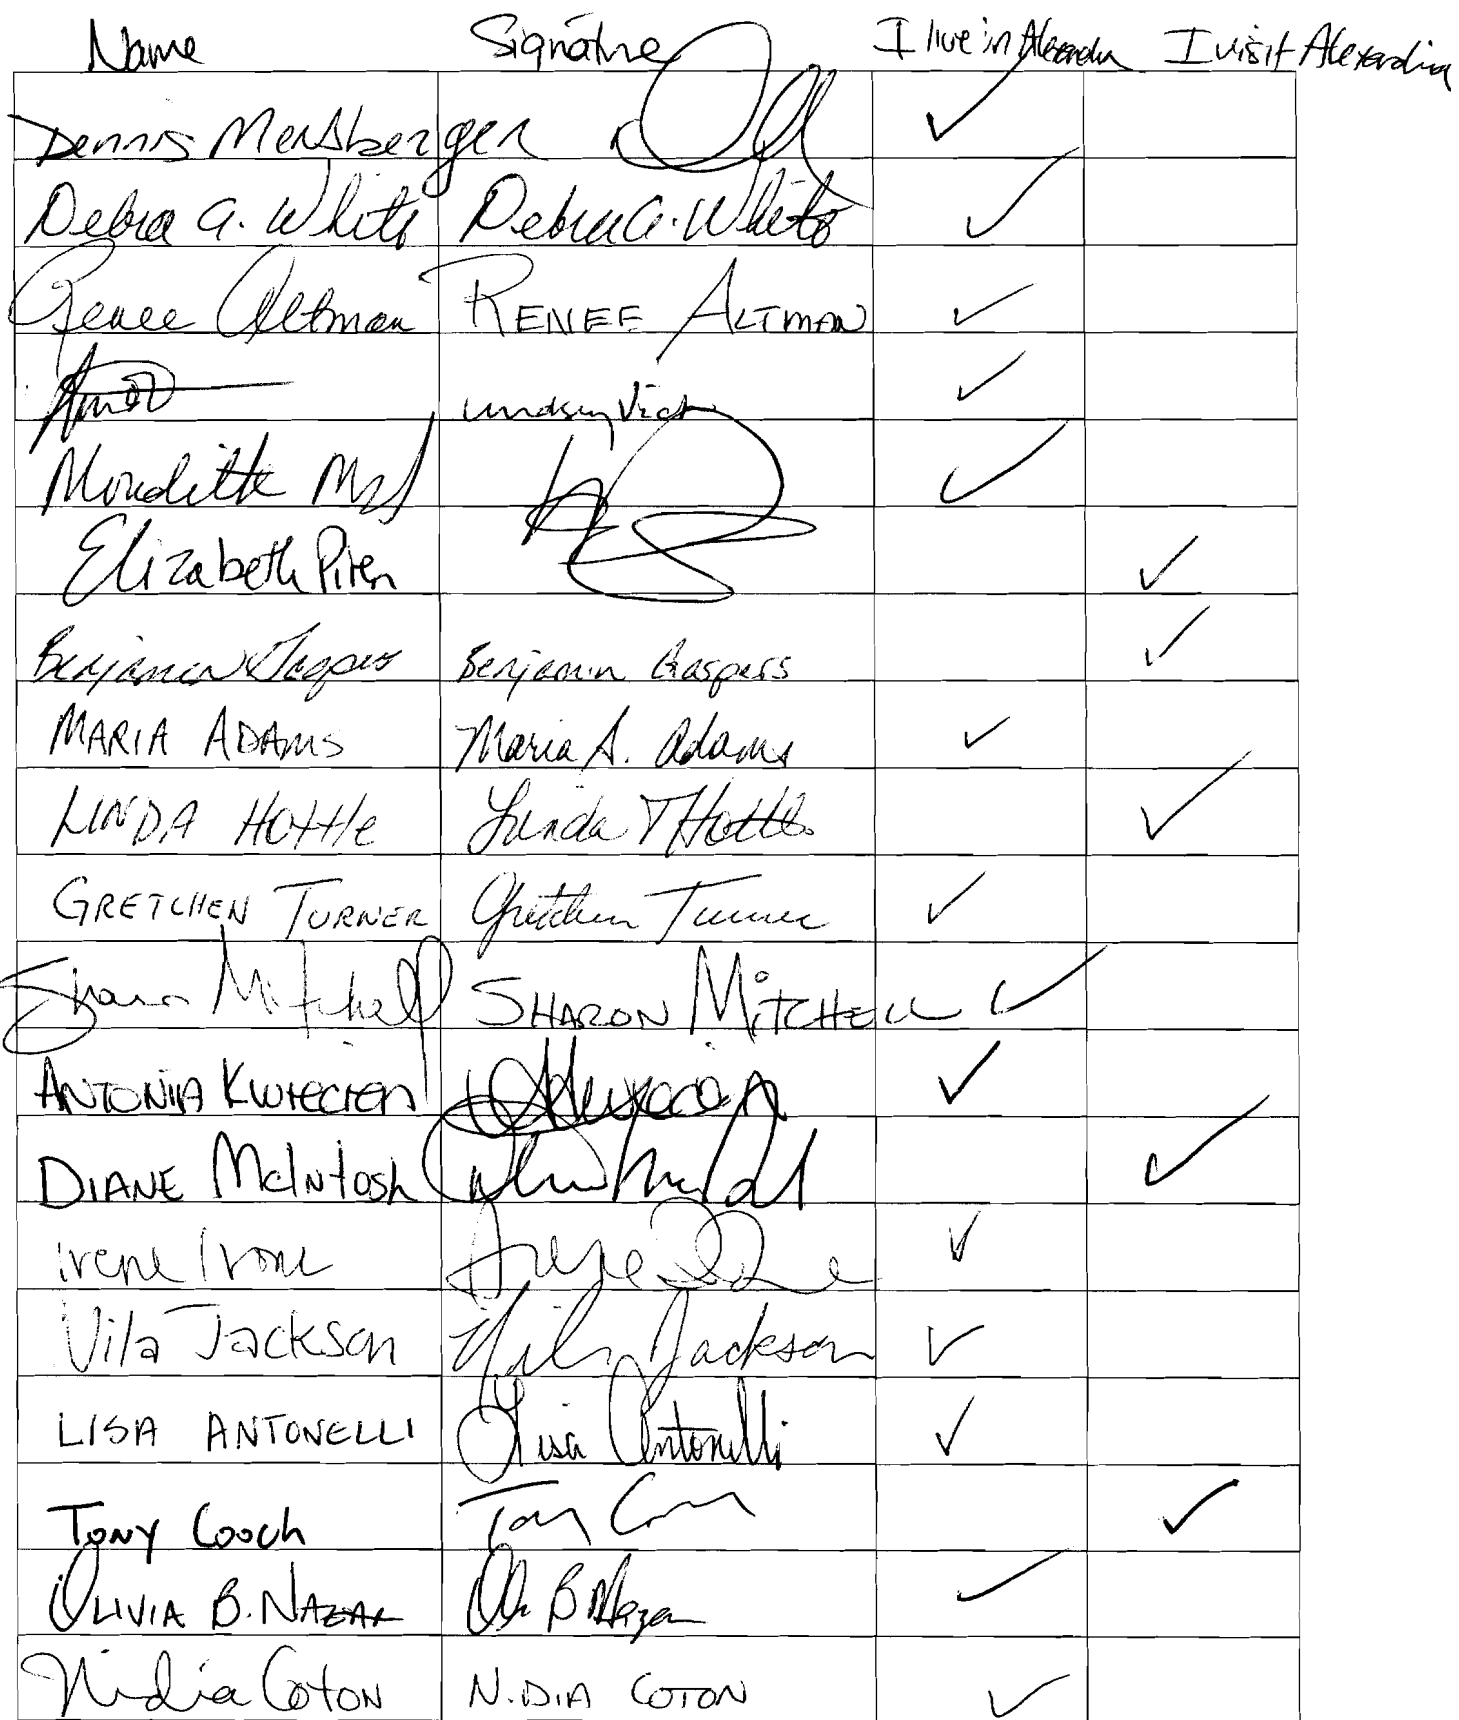 Name Signature I live in Alexandria I visit Alexandria
Dennis Mersberger ✓
Debra A. White Debra A. White ✓
Renee Altman RENEE ALTMAN ✓
Lindsey Vick ✓
Meredith ✓
Elizabeth Piren ✓
Benjamin Benjamin Gaspers ✓
MARIA ADAMS Maria A. Adams ✓
LINDA HOttle Linda T Hottle ✓
GRETCHEN TURNER Gretchen Turner ✓
Sharon Mitchell SHARON MITCHELL ✓
ANTONIA KWIECIEN ✓
DIANE McIntosh ✓
irene Irene ✓
Vila Jackson Vila Jackson ✓
LISA ANTONELLI Lisa Antonelli ✓
TONY Gooch Tony ✓
OLIVIA B. NAZAR B Nazar ✓
Nidia COTON NIDIA COTON ✓